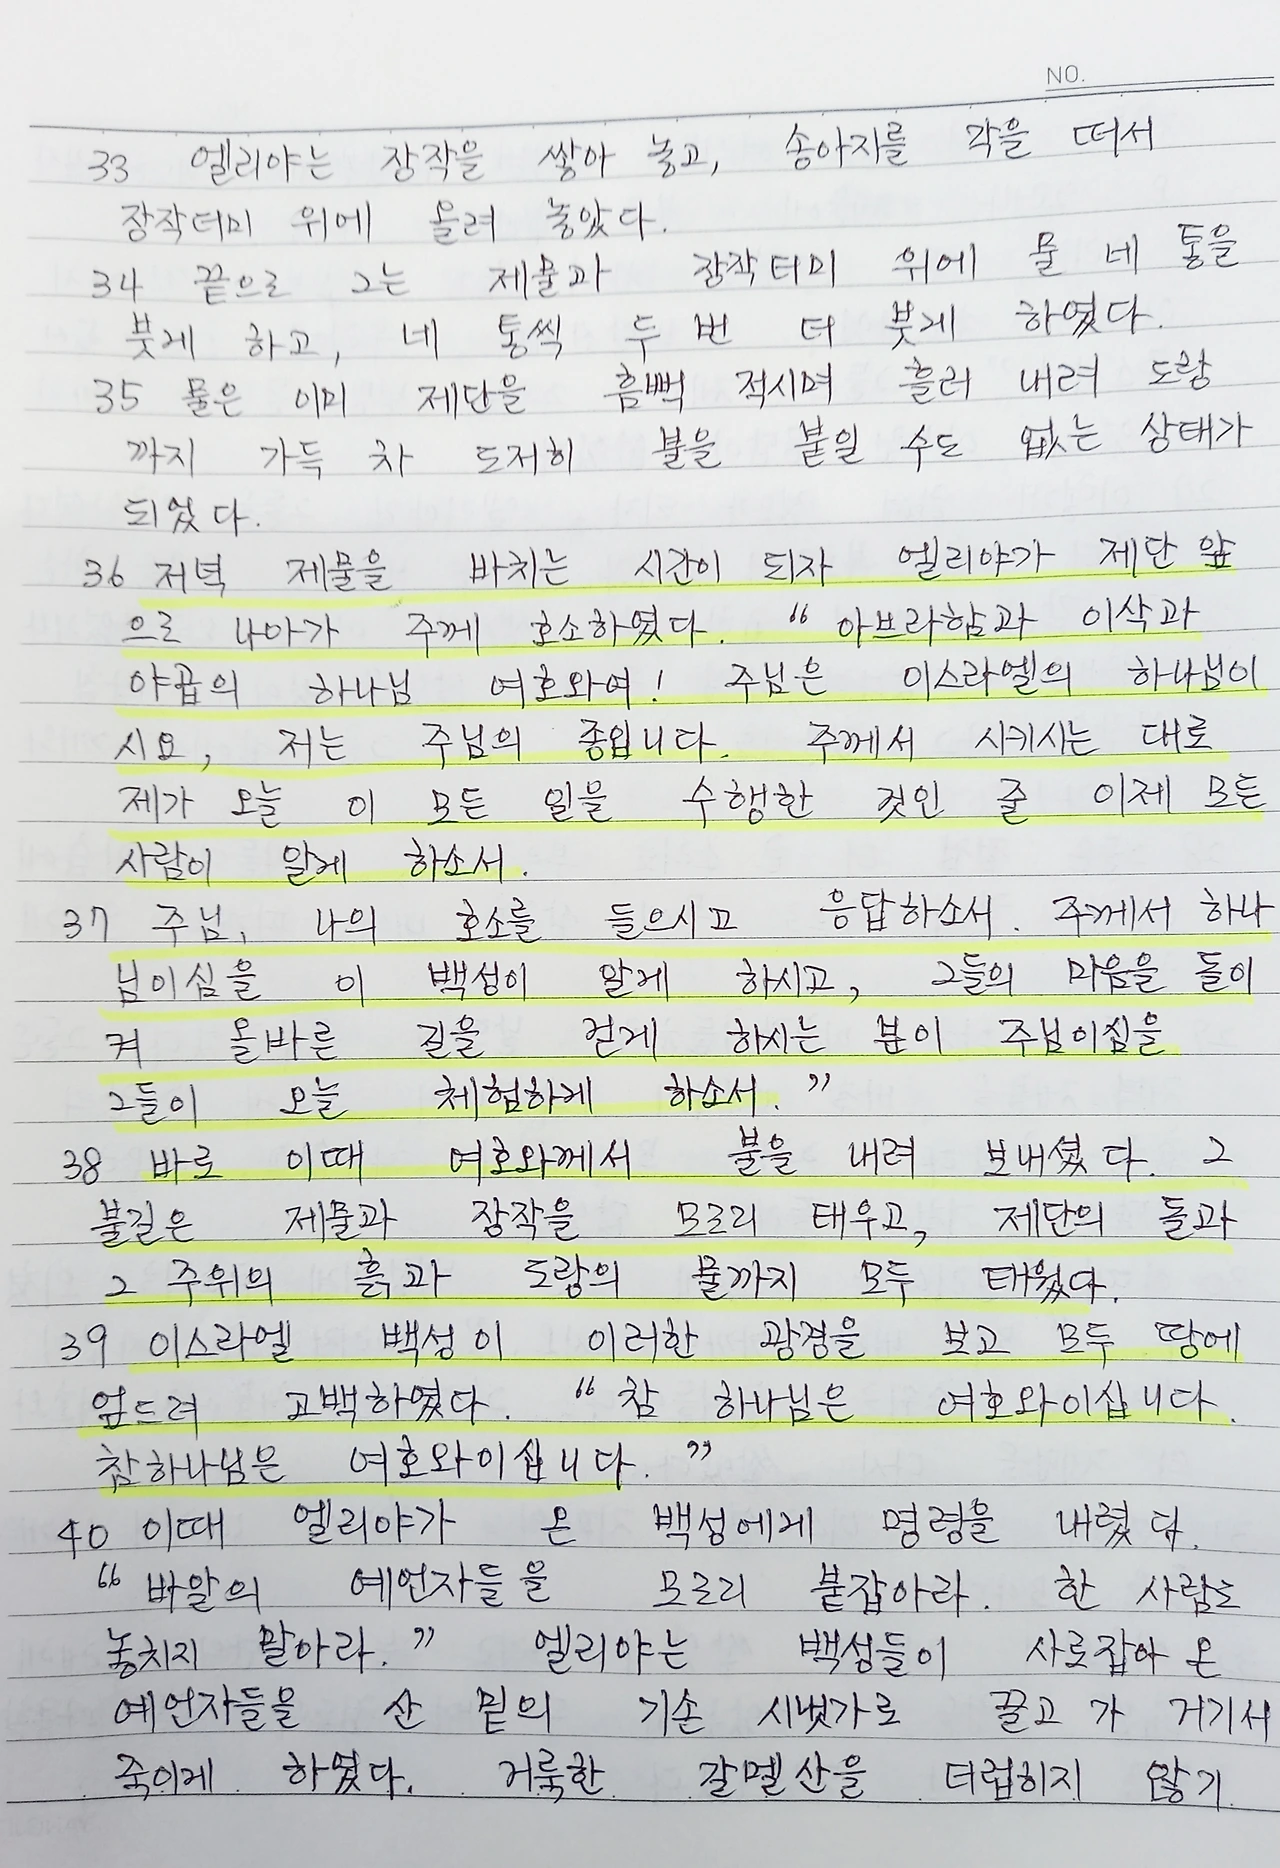 NO.
33 엘리야는 장작을 쌓아 놓고, 송아지를 각을 떠서
장작더미 위에 올려 놓았다.
34 끝으로 그는 제물과 장작터미 위에 물 네 통을
붓게 하고, 네 통씩 두 번 더 붓게 하였다.
35 물은 이미 제단을 흠뻑 적시며 흘러 내려 도랑
까지 가득 차 도저히 불을 붙일 수도 없는 상태가
되었다.
36 저녁 제물을 바치는 시간이 되자 엘리야가 제단 앞
으로 나아가 주께 호소하였다. “ 아브라함과 이삭과
야곱의 하나님 여호와여! 주님은 이스라엘의 하나님이
시요, 저는 주님의 종입니다. 주께서 시키시는 대로
제가 오늘 이 모든 일을 수행한 것인 줄 이제 모든
사람이 알게 하소서.
37 주님, 나의 호소를 들으시고 응답하소서. 주께서 하나
님이심을 이 백성이 알게 하시고, 그들의 마음을 돌이
켜 올바른 길을 걷게 하시는 분이 주님이심을
그들이 오늘 체험하게 하소서. ”
38 바로 이때 여호와께서 불을 내려 보내셨다. 그
불길은 제물과 장작을 모조리 태우고, 제단의 돌과
그 주위의 흙과 도랑의 물까지 모두 태웠다.
39 이스라엘 백성이 이러한 광경을 보고 모두 땅에
엎드려 고백하였다. “ 참 하나님은 여호와이십니다.
참하나님은 여호와이십니다. ”
40 이때 엘리야가 온 백성에게 명령을 내렸다.
“ 바알의 예언자들을 모조리 붙잡아라. 한 사람도
놓치지 말아라. ” 엘리야는 백성들이 사로잡아 온
예언자들을 산 밑의 기손 시냇가로 끌고 가 거기서
죽이게 하였다. 거룩한 갈멜산을 더럽히지 않기